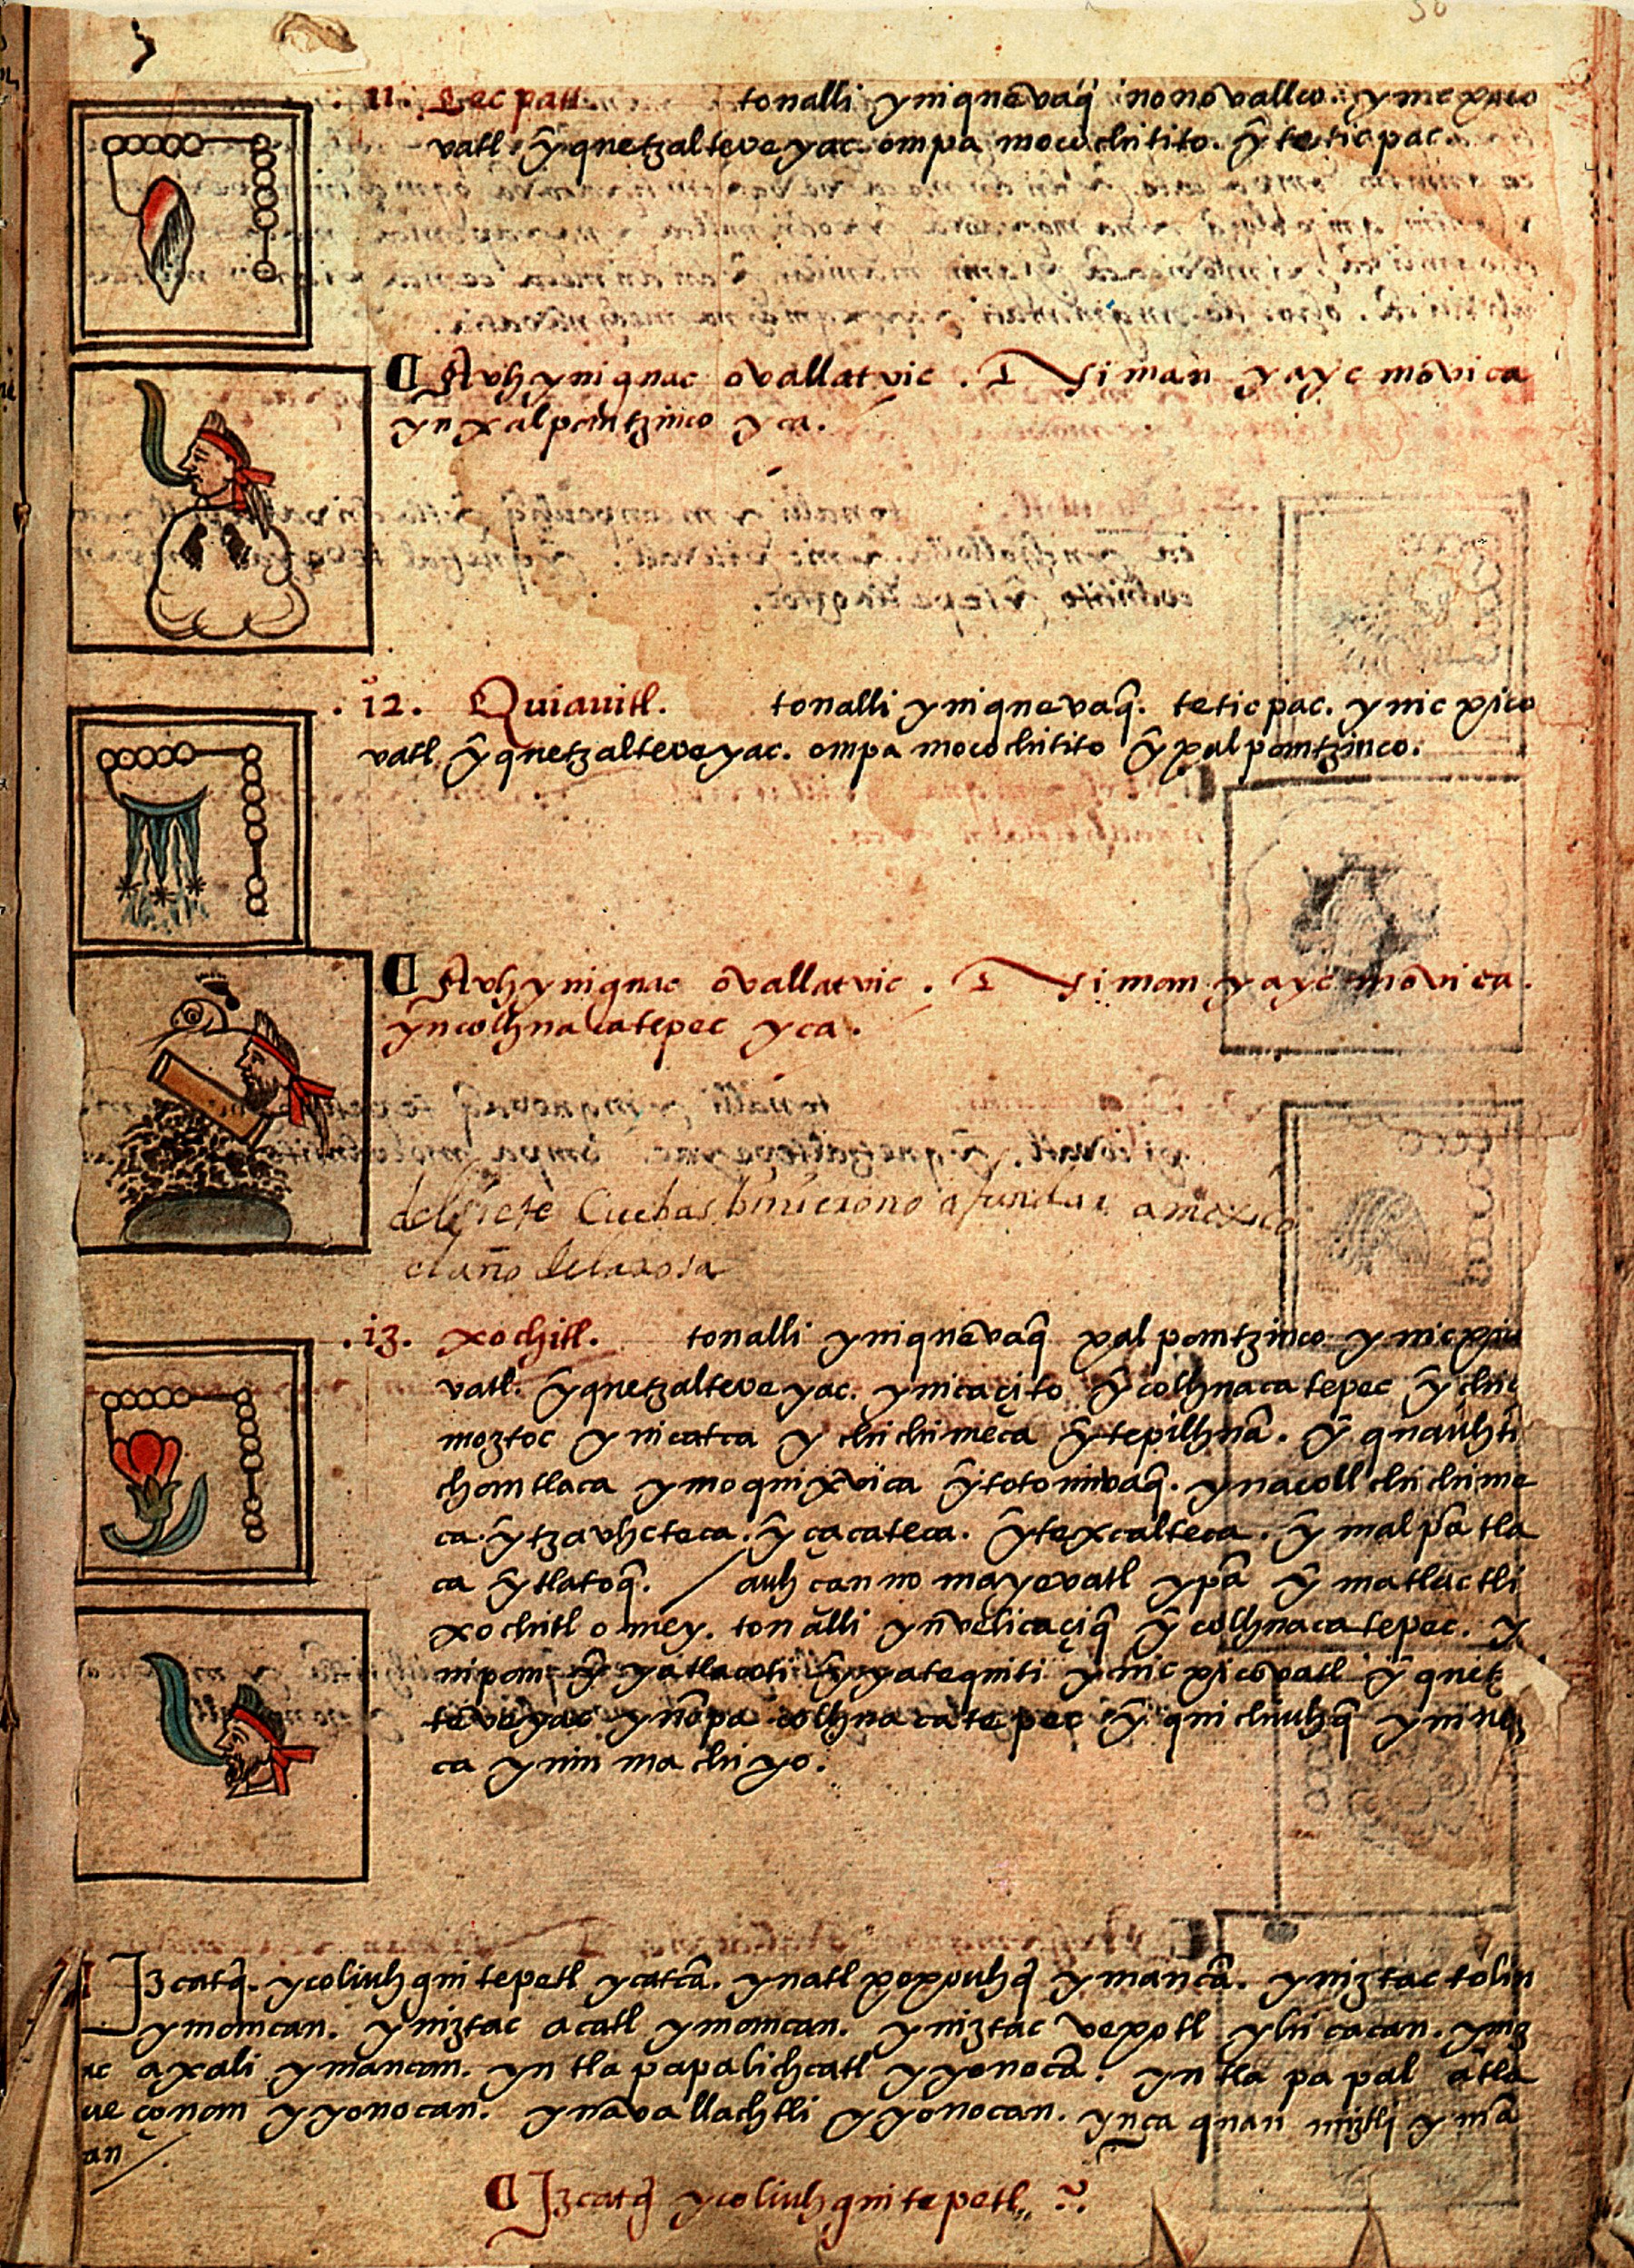 .11. Tecpatl. tonalli yniquevaq̃ nonovalco. ynicxico
vatl. ỹquetzalteveyac ompa mocochitito. ỹ teticpac.
Auh yniquac ovallatvic. Niman yayc movica
yn xalpantzinco yca.
.12. Quiauitl. tonalli yniquevaq̃. teticpac. ynicxico
vatl ỹquetzalteveyac. ompa mocochitito ỹ xalpantzinco.
Auh yniquac ovallatvic. Niman yayc movica.
ỹncolhuacatepec yca.
del siete Cuebas binierono a fundar a mexico
el año de la rosa
.13. xochitl. tonalli yniquevaq̃ xalpantzinco ynicxico
vatl. ỹquetzalteveyac. ynicaçito ỹ colhuacatepec ỹ chic
moztoc ynicatca ỹ chichimeca ỹtepilhuã. ỹ quauhti
chantlaca ymoquixvica ỹtotomivaq̃. ynacolchichime
ca. ỹtzauhcteca. ỹ çacateca. ỹtexcalteca. ỹ malpãtla
ca ỹtlatoq̃. / auh can no mayevatl ypã ỹ matlactli
xochitl omey. tonalli ynvelicaçiq̃ ỹ colhuacatepec. y
nipan ỹ yatlacoti ỹyatequiti ynicxicovatl ỹ quetz
teveyac ynõpa colhuacatepec ỹ quichiuhq̃
ca ynin machiyo.
Izcatq̃. ycoliuhquitepetl ycatcã. ynatl xoxouhq̃ ymancã. yniztac tolin
ymancan. yniztac acatl ymancan. yniztac vexotl yhicacan. ymiz
ac axali ymancan. yn tlapapalichcatl yyonocã. yn tlapapal atla
ueçonan yyonocan. ynavallachtli yyonocan. ynça quan miztli ymã
an /
Izcatq̃ ycoliuhquitepetl